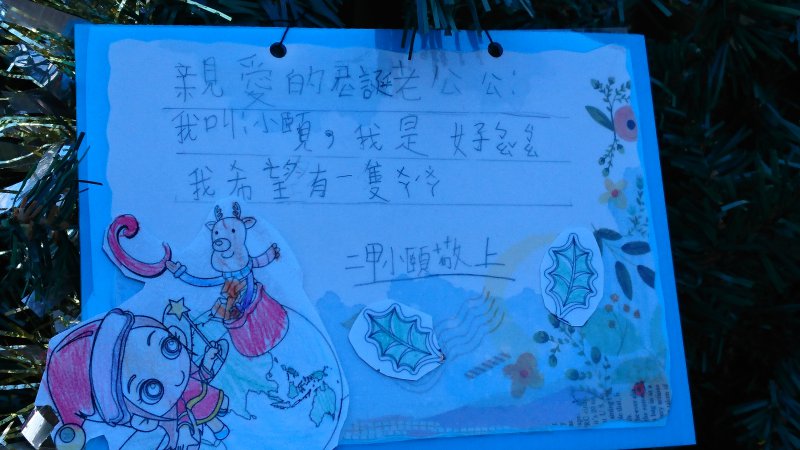 親愛的耶誕老公公:
我叫小頤，我是 好ㄠㄠ
我希望有一隻
二甲小頤敬上